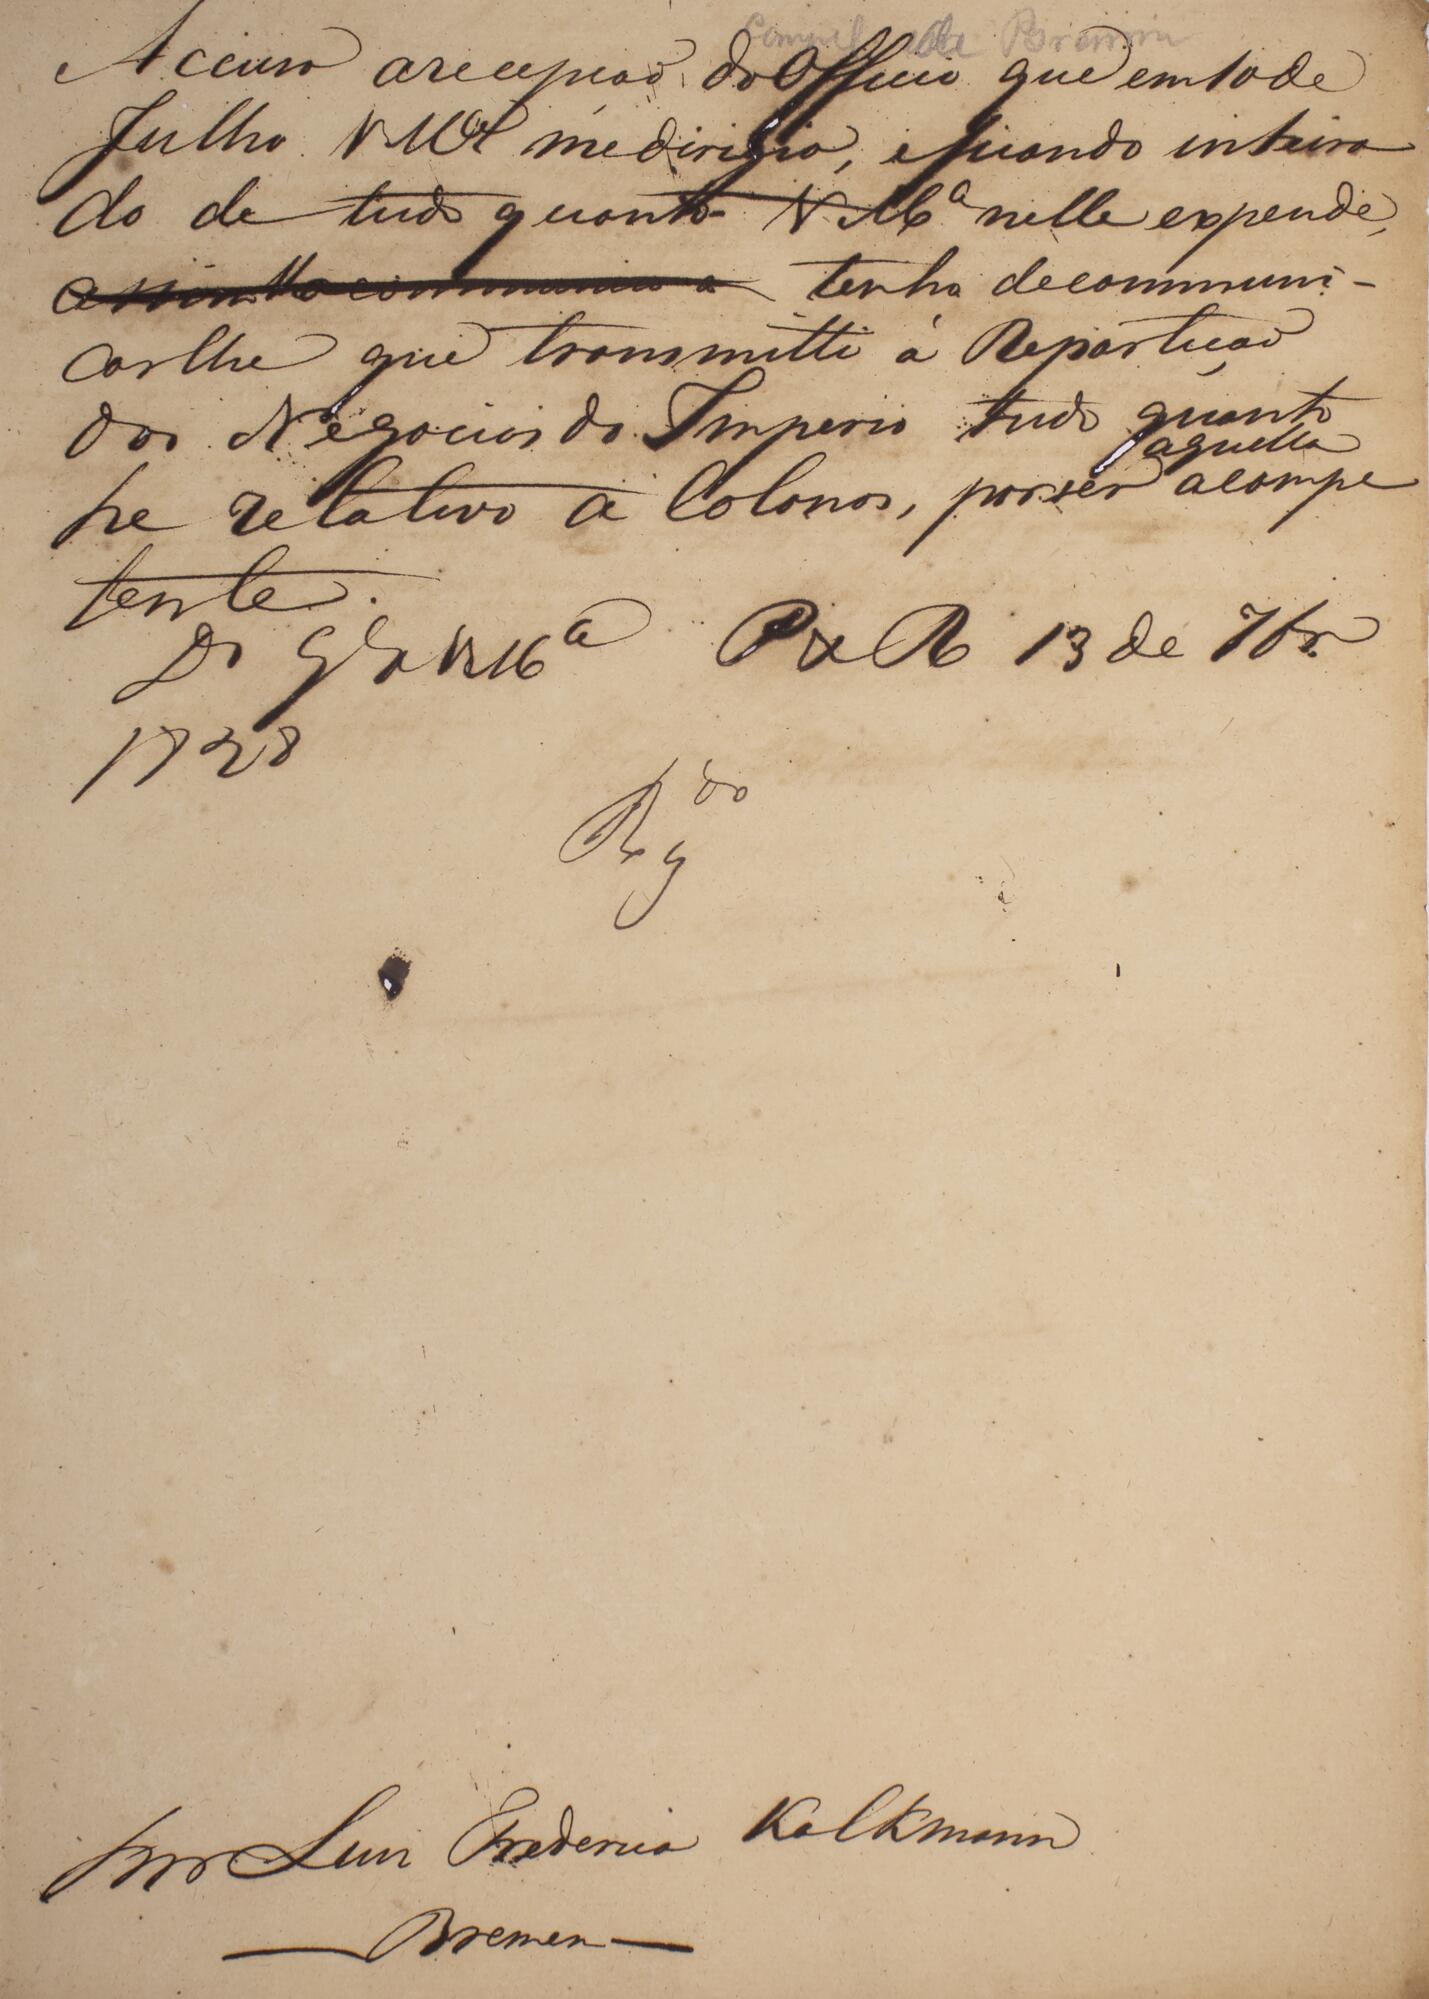 Consul de Bremen
Accuso a recepçaõ do Officio que em 10 de
Julho VMce me dirigio, e ficando inteira
do de tudo quanto VMce nelle expende,
tenho de communi-
carlhe que transmitti á Repartiçaõ
dos Negocios do Imperio tudo quanto
aquella
he relativo a Colonos, por ser a compe
tente.
Ds Gde a VMce P do R 13 de 7br.
1828
Luis Frederico Kalkmann
Bremen